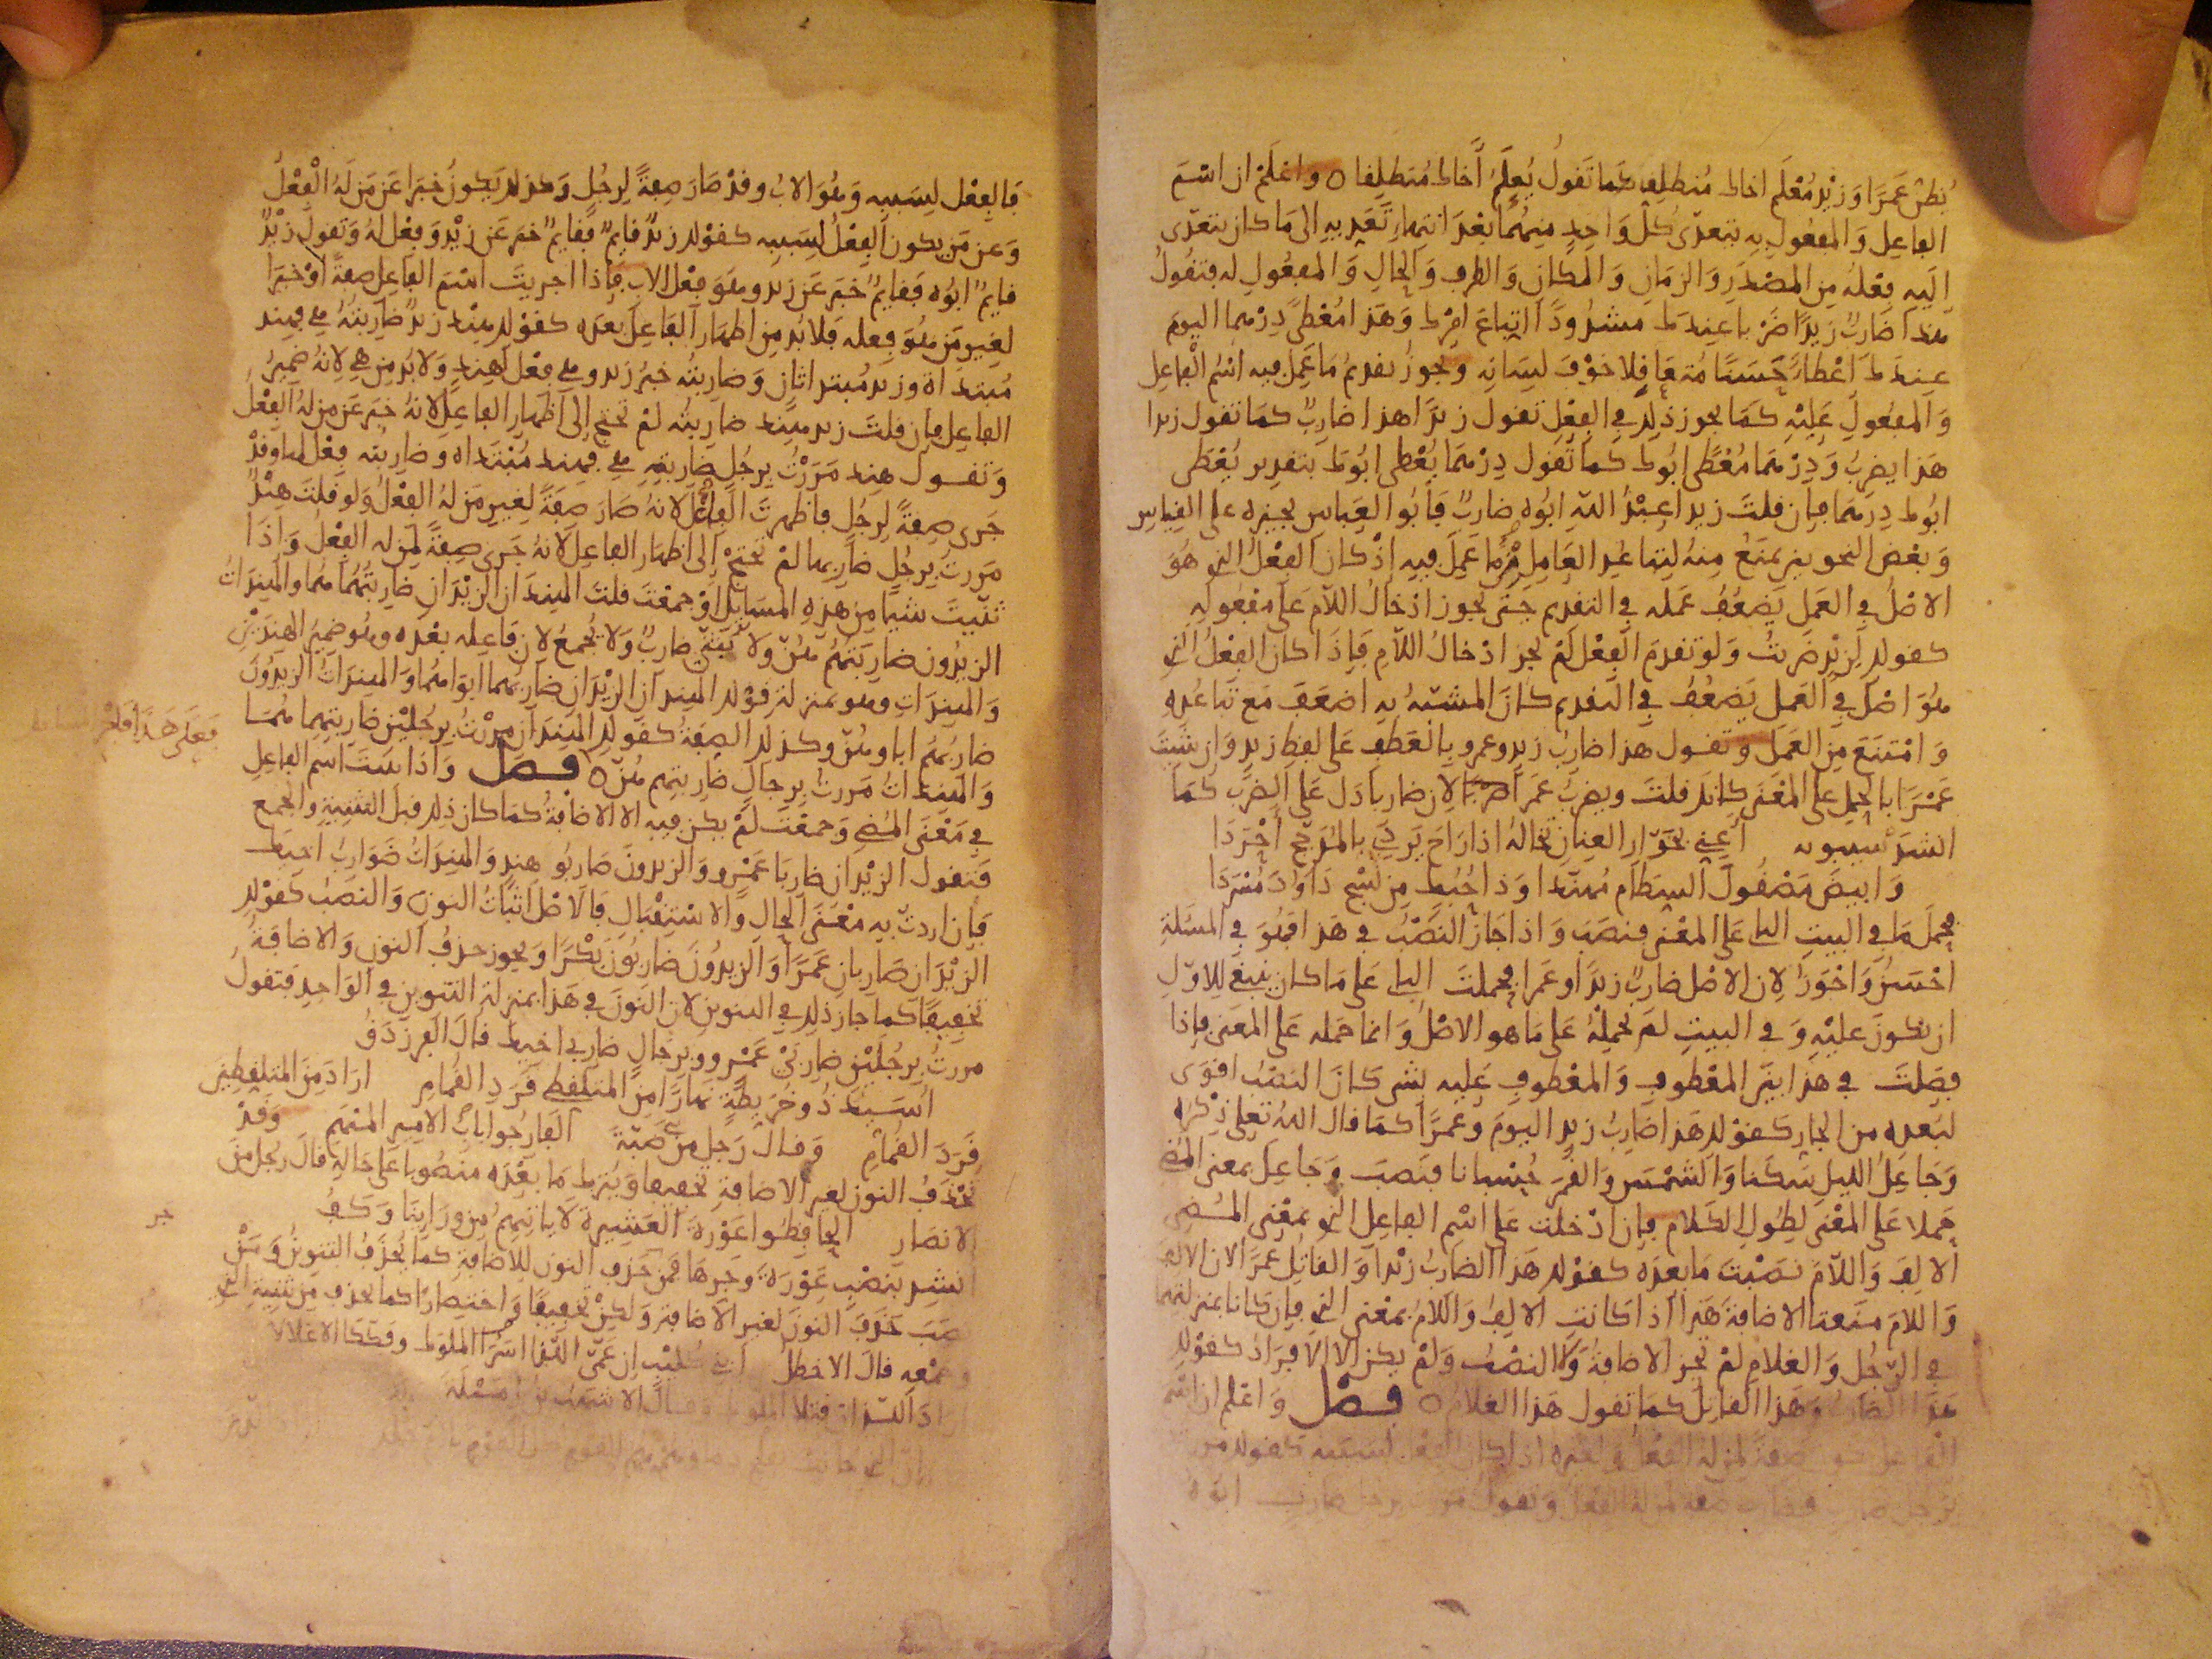 يُظنّ عَمرًا وَزَيْد مُعْلَم اخاك مُنطلِقا كَما تَقولُ يُعلَمُ أَخاك مُنطلِقا ٥ وَاعْلَمْ ان اسْمَ
الفاعِل وَالمفعُولِ بِهِ يتعدّى كُلّ وَاحِدٍ مِنهُمَا بَعْدَ انتِهاءِ تَعَدِّيهِ الى مَا كان يتعدّى
اليَهِ فِعْلُهُ مِن المَصْدَرِ وَالزمَانِ وَالمكَانِ وَالظرفِ وَالحَالِ وَالمفعُولِ له فتقُولُ
هذا ضَارِبٌ زَيْدًا ضَرْبا عِندَك مشدُودًا اتباعَ امْرِك وَهَذا مُعْطًى دِرْهما اليومَ
عِندَك اعْطاءً حَسَنًا مُتَّقًى فلا خَوْفَ لسَانِه ويجوزُ تقديمُ مَا عَمِلَ فيه اسْمُ الْفاعِل
وَالمفعُول عَلَيْهِ كَمَا يجوز ذلِك في الفِعْلِ تقول زيْدًا هذا ضارِبٌ كمَا تقول زيدا
هذا يضربُ وَدِرْهمَا مُعْطًى ابُوك كما تَقُول دِرْهمَا يُعْطى ابُوك بتقدير يُعْطَى
ابُوك دِرهمَا فإن قلتَ زيدا عبْدُ اللّهِ ابُوه ضَارِبٌ فَابُو العَباس يجيزه على القِيَاسِ
وَبَعْض النحويين يَمنَعُ مِنهُ لتباعُدِ العَامِلِ مِمّا عَمِلَ فيه اذْ كان الفِعْلُ الذي هُوَ
الاصْلُ في العَمَل يَضعُفُ عَمَله في التقديم حَتى يجوز ادْخالُ اللّام عَلى مَفعُولِهِ
كقولك لِزَيْدٍ ضَرَبتُ وَلو تقدم الفِعْل لَمْ يجز ادْخالُ اللّام فَإِذَا كان الفِعْلُ الذي
هُوَ اصْل في العَمل يَضعُفُ في التقديم كانَ المشبّهُ به اضعَفَ مَعَ تَباعُدِه
وَامْتنَعَ مِنَ العَمل وتقول هذا ضارِبُ زيدٍ وعمرو بِالعَطفِ عَلى لفظِ زيدٍ وَان شئتَ
عمْرًا بالحمل على المَعْنَى كانك قلتَ ويضربُ عمرًا لان ضاربا دَل عَلى الضَرْب كمَا
انشدَ سيبويه أعِنّي بخوّارِ العِنانِ تخالُهُ اذا رَاحَ يَردِي بالمُدجّجِ أحْرَدَا
وَابيضَ مَصْقُولَ السِطَام مُهنّدًا وَذا حُبُكٍ مِن نَسْجِ دَاوُدَ مُسْرَدَا
فحَمَلَ مَا في البيتِ الثاني عَلى المعْنى فنصَبَ وَاذا جَازَ النَصْبُ في هَذا فَهُوَ في المسْئلةِ
احْسَنُ وَاجْوَدُ لان الاصْل ضارِبٌ زيْدًا وعَمرًا فحملتَ الثاني عَلى مَا كان ينبغي للاوّلِ
ان يكون عليْهِ وَفي البيتِ لمْ تحمِلْهُ عَلى مَا هو الاصْلُ وَانما حَمَله عَلى المعَنى فإذا
فصَلتَ في هذا بيْنَ المعْطوفِ وَالمعْطوفِ عَليه بشيٍ كانَ النصْبُ اقوَى
لبُعْدِه من الجارِ كقوْلك هَذا ضَارِبُ زيدٍ اليومَ وعمرًا كمَا قال اللهُ تعلى ذِكرُه
وَجَاعِلُ الليلِ سَكَنا وَالشمْسَ وَالقَمَرَ حُسْبانا فنصَبَ وَجَاعِل بمعنى المُضي
حَملا عَلى المعْنى لطُولِ الكَلام فإن ادْخلتَ عَلى اسْمِ الفاعِل الذي بمعْنى المُضي
الالِفَ وَاللّامَ نصَبْتَ مَا بعْدَه كقوْلك هَذا الضارِبُ زيْدًا وَالقاتِلُ عمرًا لان الالِفَ
وَاللامَ منَعتا الاضافةَ هَذا اذا كَانتِ الالِفُ وَاللامُ بمعْنى الذي فإن كانا بمنزِلتِهما
في الرّجُل وَالغلام لمْ تجز الاضافةُ وَلَا النصْبُ وَلمْ يكن الا الافرَادُ كقوْلك
هَذا الضاربُ وَهَذا القاتِلُ كمَا تقول هَذا الغلامُ ٥ فصْل وَاعْلم ان اسْم
الفاعِل يكون صِفةً لمن لهُ الفعْلُ وَلغيره اذا كان الفِعْل لسَبَبه كقولك مررت
برَجلٍ ضاربٍ فضارب صفة لمن له الفعْلُ وتقول مررت برجلٍ ضاربٍ ابوهُ
فَالفِعْل لسَببِه وَهُوَ الابُ وقدْ صَارَ صِفةً لِرجُلٍ وَكذلك يَكونُ خبَرًا عَن مَن لَهُ الْفِعْلُ
وَعن مَن يكون الفِعْلُ لسَببِه كقوْلك زيدٌ قايمٌ فقايمٌ خبَر عَن زيْدٍ وَفِعْل لهُ وَتقول زيْدٌ
قايمٌ ابُوه فقايمٌ خبَر عَن زيد وهو فِعْل الابِ فإذا اجريتَ اسْمَ الفاعِل صفةً اوْ خبرًا
لغيرِ مَن هُوَ فِعله فلابُد مِن اظهار الفَاعِل بعده كقوْلك هِندٌ زيدٌ ضارِبتُه هي فهِند
مُبتدأة وزيد مُبتدا ثانٍ وَضارِبتُه خبرُ زيد وهي فِعْل لهندٍ وَلابُد مِن هي لانهُ ضمِيرُ
الفاعِل فإن قلتَ زيد هِند ضارِبتُه لمْ تحتجْ إلى اظهار الفاعِل لانهُ خبَر عَن من لهُ الفِعْلُ
وَتقول هِند مَرَرْتُ برجُلٍ ضاربتِهِ هي فهند مُبْتَدأه وضاربته فِعْل لها وقدْ
جَرى صِفةً لرجُلٍ فاظهرتَ الفاعِلَ لانهُ صَارَ صِفةً لغيرِ مَن لهُ الفِعْلُ وَلو قلتَ هِنْدٌ
مَررتُ برجُلٍ ضاربها لمْ تحتجْ إلى اظهار الفاعِل لانهُ جَرى صِفةً لمن له الفِعْلُ وَاذَا
ثنّيتَ شيا من هذِهِ المسَايِل اوْ جمعْتَ قلتَ الهندَان الزيْدَانِ ضارِبتُهُمَا هُما والهندَاتُ
الزيدُون ضارِبَتُهُمْ هُنّ وَلا يُثنّى ضارِبٌ وَلا يُجمعُ لان فَاعِله بعْدَه وهُو ضمِيرُ الهندَيْنِ
وَالهِندَاتِ وهو بمنزلة قوْلك الهندانِ الزيْدَان ضاربُهما ابوَاهُما وَالهِندَاتُ الزيدُونَ
ضاربُهُمْ اباوهُنّ وكذلك الصِفةُ كقولك الهِندَانِ مررْتُ برجُليْن ضاربتِهِما هُمَا
وَالهندَاتُ مَررتُ برجالٍ ضاربتِهِم هُنّ ٥ فصْل وَاذا ثنيتَ اسم الفاعِل
في مَعْنَى المُضي وَجمعْتَ لمْ يكن فيه الا الاضافةُ كمَا كان ذلِك قبلَ التثنِيةِ والجمع
فتقول الزيْدان ضاربَا عَمْرٍو وَالزيدونَ ضاربُو هِندٍ وَالهِندَاتُ ضَوَارِبُ اخِيك
فإن اردتَ به مَعْنَى الحَال وَالاسْتقبَال فالاصْل اثباتُ النونِ وَالنصْبُ كقوْلك
الزيْدَان ضَاربانِ عَمرًا وَالزيدُونَ ضاربُونَ بَكْرًا وَيجوز حذفُ النون وَالاضافةُ
تخفيفًا كما جازَ ذلِك في التنوين لان النون في هَذا بمنزلة التنوين في الوَاحِدِ فتقول
مررتُ برجُلَيْن ضاربَيْ عَمْرٍو وبرجَالٍ ضاربي اخيك قالَ الفَرزدَقُ
أُسَيّدُ ذُو خُرَيطةٍ نهَارًا مِنَ المتلقّطِي قَرَدِ القُمام ارَادَ مِنَ المتلقّطِينَ
قَرَدَ القُمامِ وَقال رَجل من ضبّة الفَارجُو بابِ الامِيرِ المبْهَم وَقَدْ
تُحْذفُ النون لغير الاضافةِ تخفيفا وَيُتركُ مَا بعْدَه منصُوبا عَلى حَالِهِ قالَ رجُل منَ
الانصَار الحافِظُوا عَوْرةَ العَشِيرةِ لا يَاتِيهِمُ مِن ورَايِنَا وَكَفُ
انشِدَ بنصْب عَوْرَة وَجرها فمَن جَرّ حذف النون للاضافةِ كما يُحذَفُ التنوينُ وَمَنْ
نصَبَ حَذفَ النونَ لغير الاضافةِ وَلكِنْ تخفِيفًا وَاختِصارًا كما يحذف مِن تثنِيةِ الذي
وجمْعِه قالَ الاخطلُ أبني كُليْبٍ إن عَمّيّ اللّذا اسَرا الملوكَ وفَكّكا الاغلالا
ارَادَ اللّذان قتلا الملوك وَقالَ الاشهبُ بنُ رُمَيْلَة
إنّ الذي حَانَتْ بفَلجٍ دِماوهُمْ هُمُ القومُ كل القوم يا ام خالد